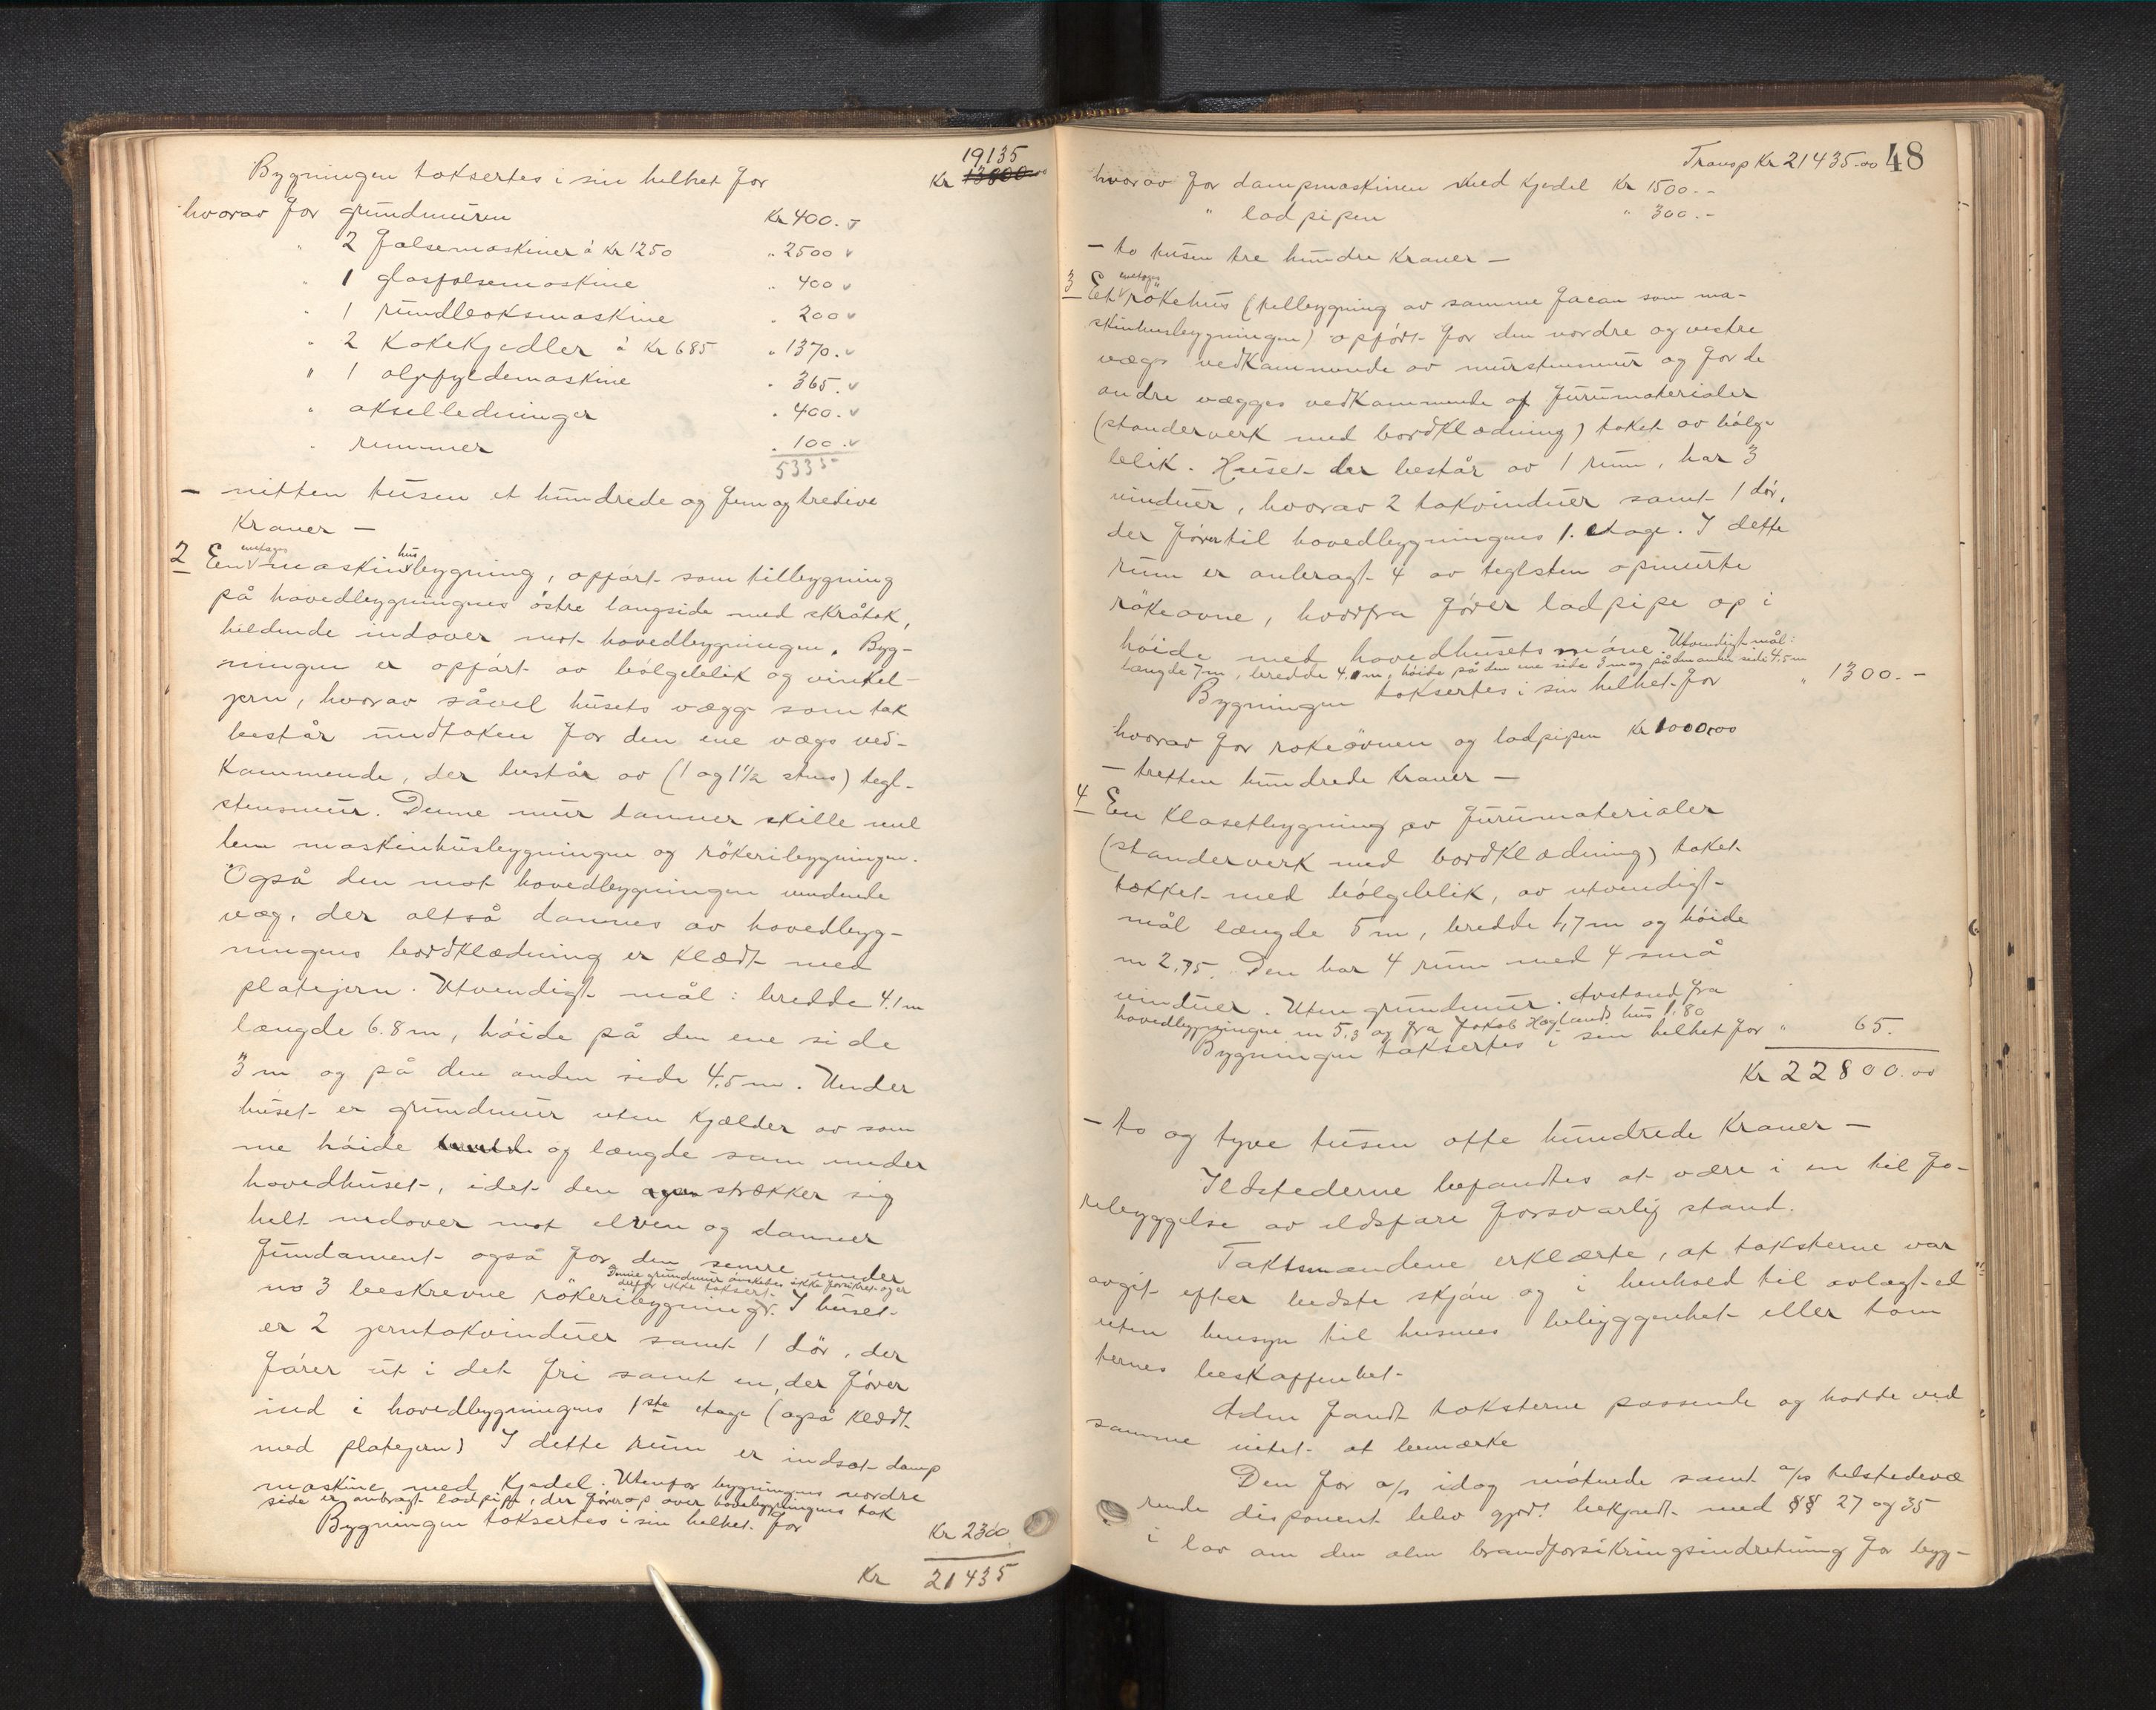 Bygningen taksertes i sin helhet for Kr 13800.00 19135
hvorav for grundmuren Kr 400.-
" 2 falsemaskiner á Kr 1250 " 2500
" 1 glasfalsemaskine " 400
" 1 rundboksmaskine " 200
" 2 Kokekjedler á Kr 685 " 1370.
" 1 oljefyldemaskine " 365.
" akselledninger " 400.
" remmer " 100.
5335-
- nitten tusen et hundrede og fem og tredive
Kroner -
2 En enetages maskinhusbygning, opført som tilbygning
på hovedbygningens østre langside med skråtak,
heldende indover mot hovedbygningen. Byg-
ningen er opført av bølgeblik og vinkel-
jern, hvorav såvel husets vægge som tak
består undtaken for den ene vægs ved-
Kammende, der består av (1 og 1½ stens) tegl-
stensmur. Denne mur danner skille mel
lem maskinhusbygningen og rökeribygningen.
Også den mot hovedbygningen vendende
væg, der altså dannes av hovedbyg-
ningens bordklædning er klædt med
platejern. Utvendigt mål: bredde 4.1 m
længde 6.8 m, høide på den ene side
3 m og på den anden side 4.5 m. Under
huset er grundmur uten kjælder av sam
me høide og længde som under
hovedhuset, idet den strækker sig
helt nedover mot elven og danner
fundament også for den senere under
Denne grundmur ønskedes ikke forsikret og er
derfor ikke taksert.
no 3 beskrevne rökeribygning. I huset
er 2 jerntakvinduer samt 1 dör, der
fører ut i det fri samt en, der fører
ind i hovedbygningens 1ste etage (også klædt
med platejern) I dette rum er indsat damp
maskine med Kjedel. Utenfor bygningens nordre
side er anbragt ladpipe, der fører op over hovedbygningens tak
Bygningen taksertes i sin helhet for Kr 2300
Kr 21435
Transp Kr 21435.00 48
hvorav for dampmaskinen med Kjedel Kr 1500.-
" ladpipen " 300.-
- to tusen tre hundre Kroner -
3 Et enetages rökehus (tilbygning av samme facan som ma-
skinhusbygningen) opført for den nordre og vestre
vægs vedkammende av murstensmur og for de
andre vægges vedkammende af furumaterialer
(standerverk med bordklædning) taket av bölge
blik. Huset der består av 1 rum, har 3
vinduer, hvorav 2 takvinduer samt 1 dör,
der fører til hovedbygningens 1. etage. I dette
rum er anbragt 4 av teglsten opmurte
rökeovne, hvorfra fører ladpipe op i
höide med hovedhusets möne. Utvendigt mål:
længde 7 m, bredde 4,1 m, höide på den ene side 3 m og på den anden side 4,5 m
Bygningen taksertes i sin helhet for " 1300.-
hvorav for rökeovnen og ladpipen Kr 1000,00
- tretten hundrede Kroner -
4 En Klosetbygning av furumaterialer
(standerverk med bordklædning) taket
tækket med bölgeblik, av utvendigt
mål længde 5 m, bredde 1,7 m og höide
m 2,75. Den har 4 rum med 4 små
vinduer. Uten grundmur. Avstand fra
hovedbygningen m 5,3 og fra Jakob Høglands hus 1,80
Bygningen taksertes i sin helhet for " 65.
Kr 22800.00
- to og tyve tusen otte hundrede Kroner -
Ildstederne befandtes at være i en til fo-
rebyggelse av ildsfare forsvarlig stand.
Takstmændene erklærte, at taksterne var
avgit efter bedste skjön og i henhold til avlagt ed
uten hensyn til husenes beliggenhet eller tom
ternes beskaffenhet.
fandt taksterne passende og hadde ved
samme intet at bemærke
Den for a/s idag møtende samt a/s tilstedevæ
rende disponent blev gjort bekjendt med §§ 27 og 35
i lov om den alm brandforsikringsindretning for byg-